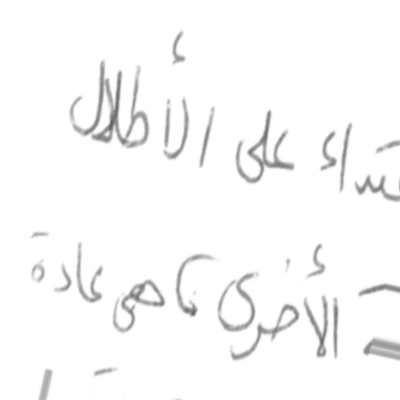 على الأطلال
الأخرى كما هي عادة